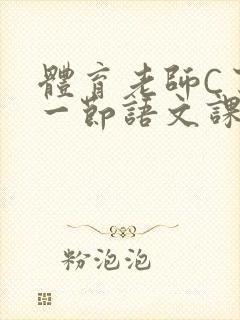 體育老師C
一節語文課
粉泡泡